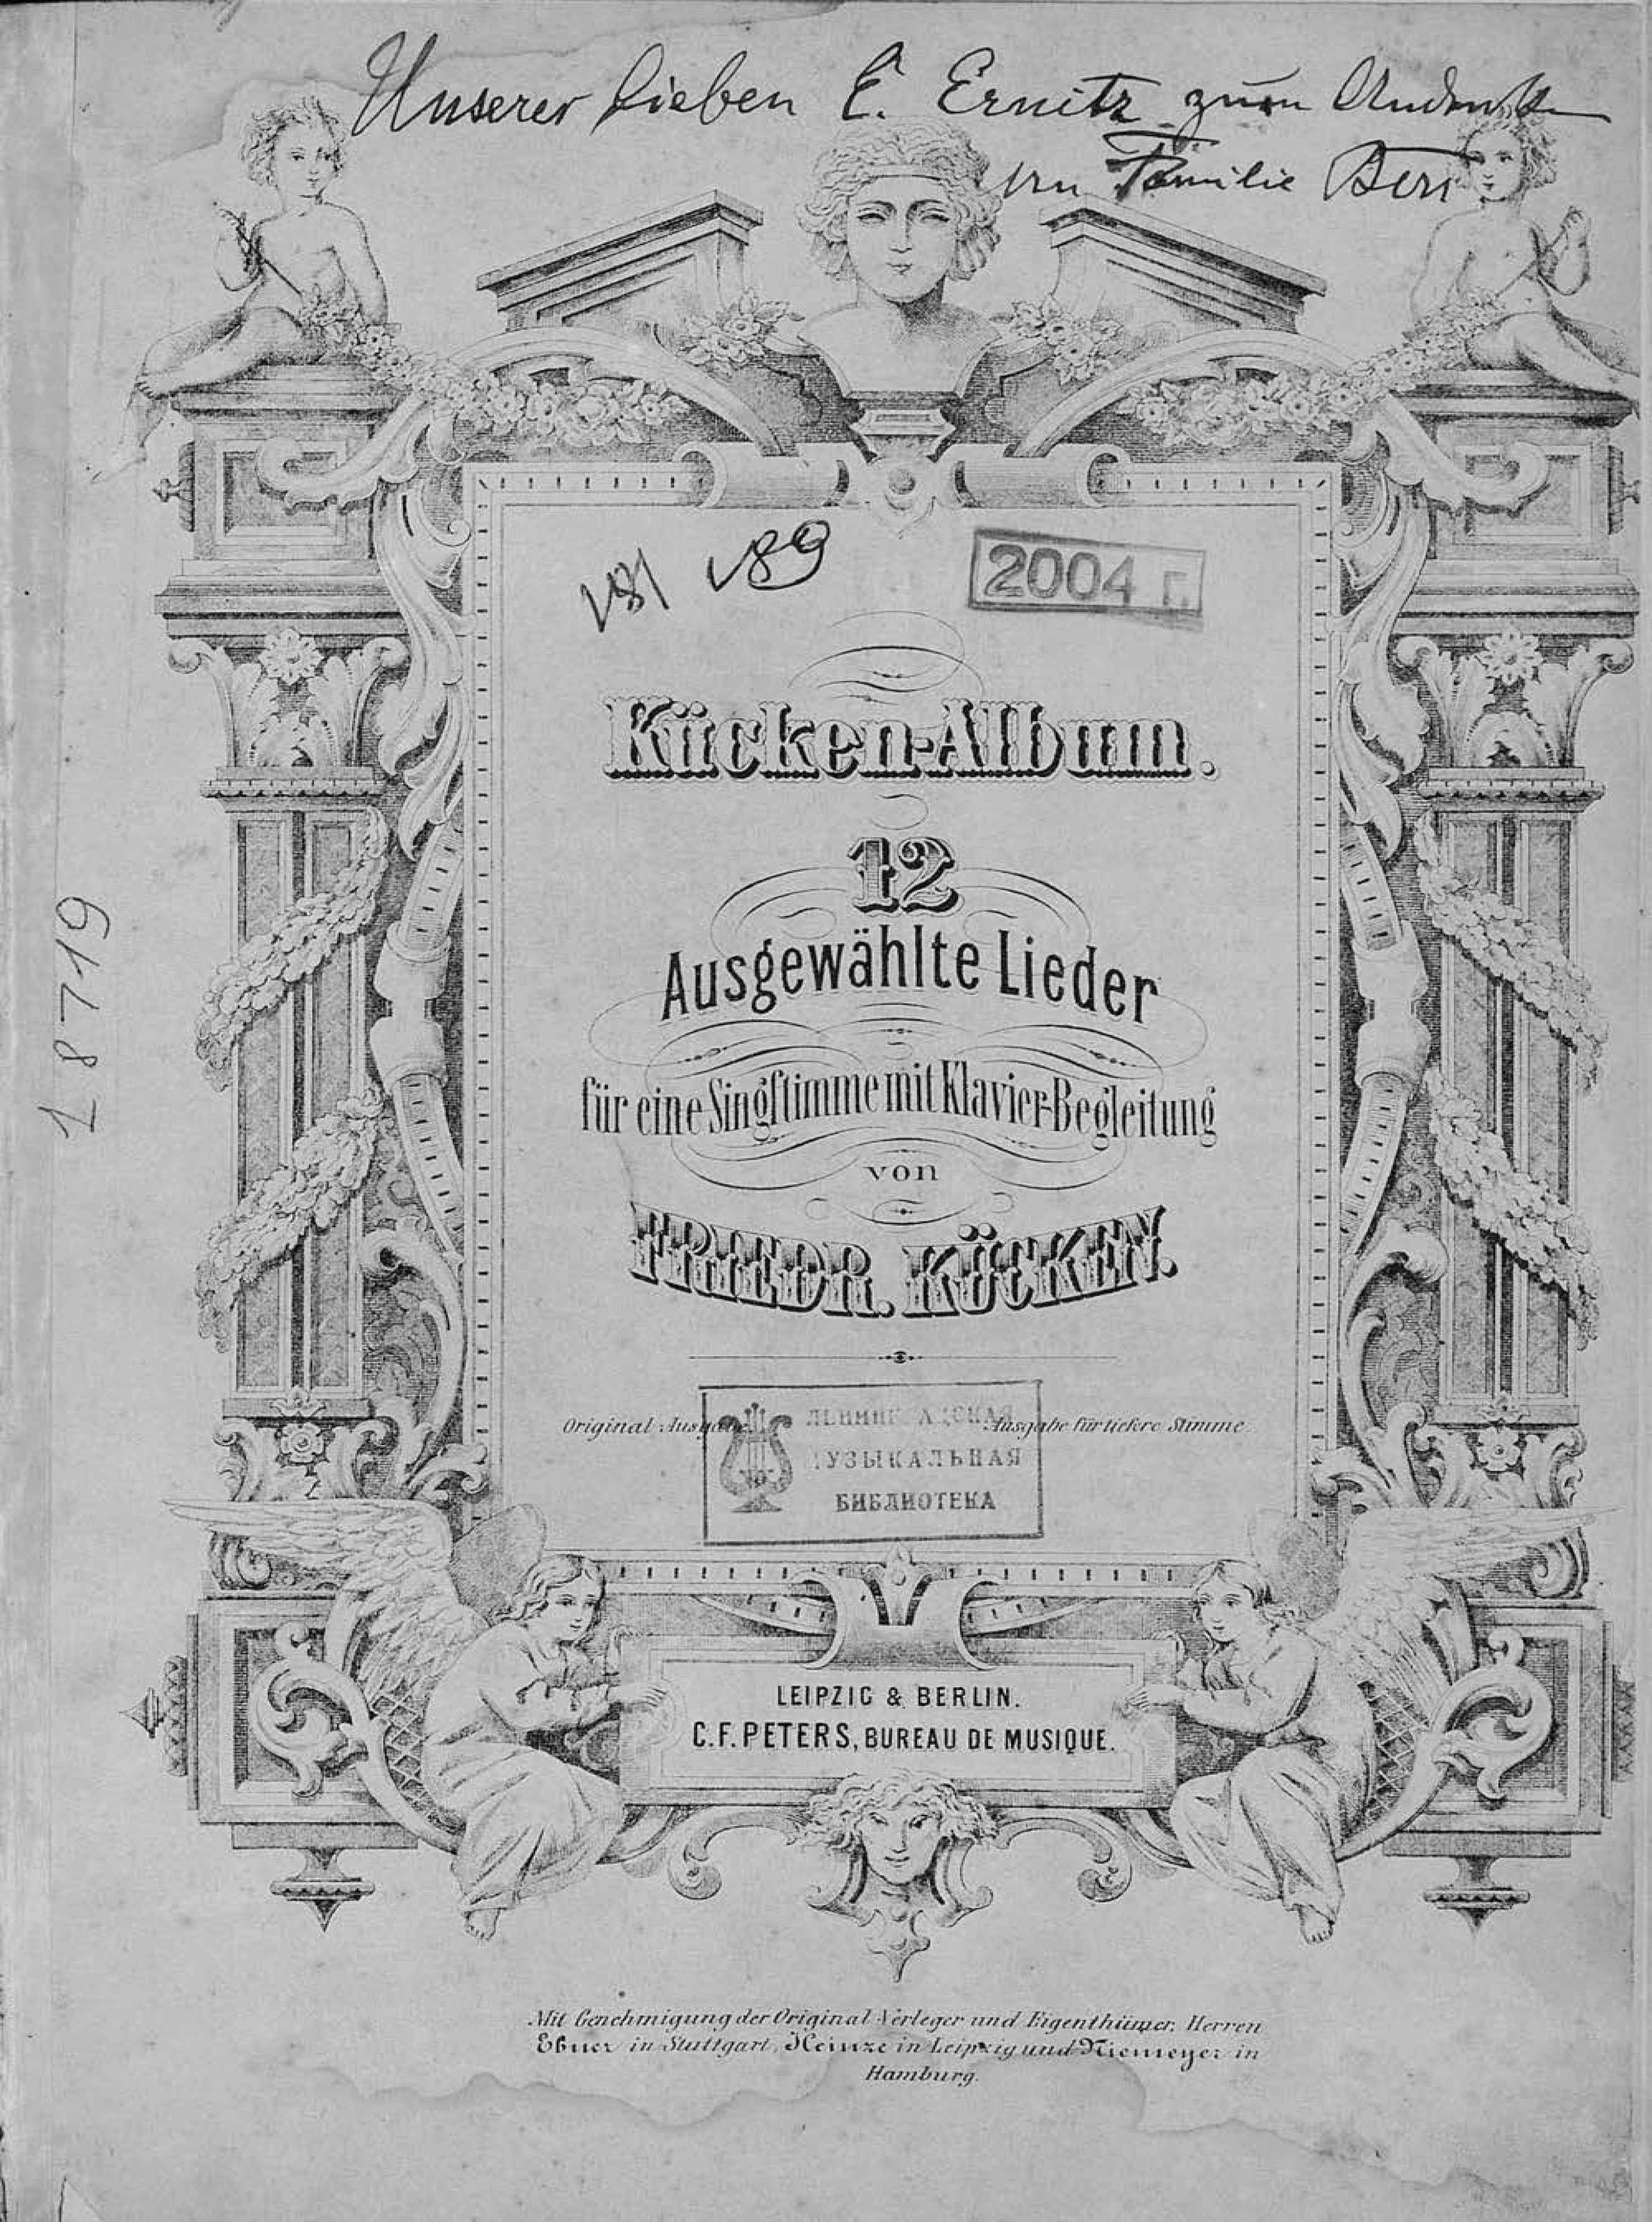 Unserer lieben E. Ernitz zum
Familie
V81 V89
2004 г.
Kücken-Album.
12
Ausgewählte Lieder
für eine Singſtimme mit Klavier-Begleitung
von
FRIEDR. KÜCKEN.
Original-Ausgabe. Ausgabe für tiefere Stimme.
МУЗЫКАЛЬНАЯ
БИБЛИОТЕКА
LEIPZIG & BERLIN.
C.F. PETERS, BUREAU DE MUSIQUE.
Mit Genehmigung der Original-Verleger und Eigenthümer, Herren
Ebner in Stuttgart, Heinze in Leipzig und Niemeyer in
Hamburg.
18719